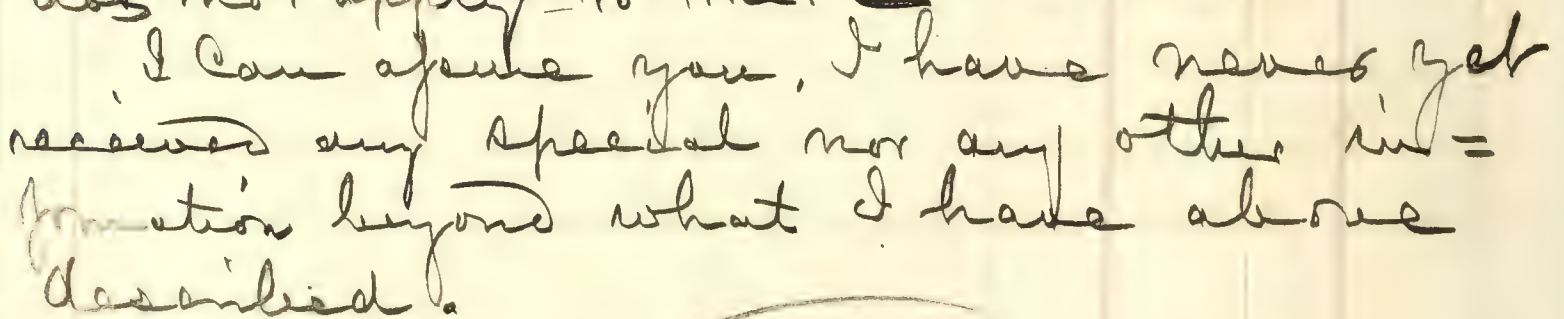 does not apply to that
I can assure you, I have never yet
received any special nor any other in=
formation beyond what I have above
described.